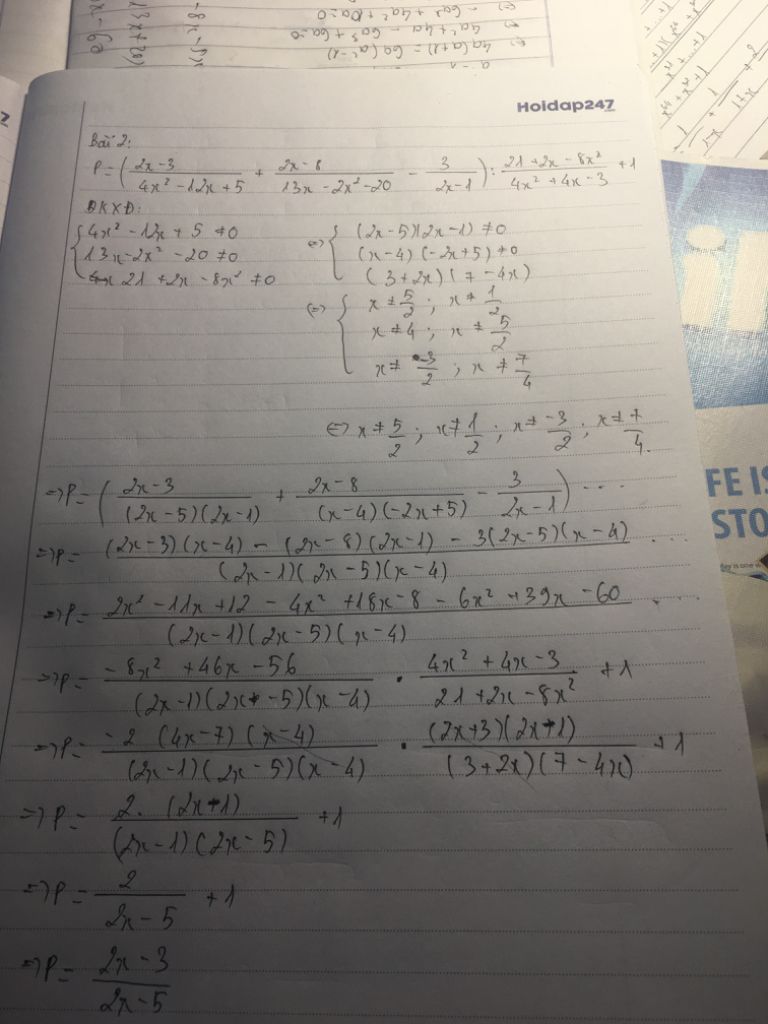 Hoidap247
Bài 2:
P = ( (2x-3)/(4x² - 12x + 5) + (2x-8)/(13x - 2x² - 20) - 3/(2x-1) ) : (21 + 2x - 8x²)/(4x² + 4x - 3) + 1
ĐKXĐ:
{ 4x² - 12x + 5 ≠ 0 <=> { (2x-5)(2x-1) ≠ 0
13x - 2x² - 20 ≠ 0 (x-4)(-2x+5) ≠ 0
21 + 2x - 8x² ≠ 0 (3+2x)(7-4x)
<=> { x ≠ 5/2 ; x ≠ 1/2
x ≠ 4 ; x ≠ 5/2
x ≠ -3/2 ; x ≠ 7/4
<=> x ≠ 5/2 ; x ≠ 1/2 ; x ≠ -3/2 ; x ≠ 7/4.
=> P = ( (2x-3)/((2x-5)(2x-1)) + (2x-8)/((x-4)(-2x+5)) - 3/(2x-1) ) ...
=> P = ((2x-3)(x-4) - (2x-8)(2x-1) - 3(2x-5)(x-4))/((2x-1)(2x-5)(x-4)) ...
=> P = (2x² - 11x + 12 - 4x² + 18x - 8 - 6x² + 39x - 60)/((2x-1)(2x-5)(x-4)) ...
=> P = (-8x² + 46x - 56)/((2x-1)(2x-5)(x-4)) . (4x² + 4x - 3)/(21 + 2x - 8x²) + 1
=> P = (-2(4x-7)(x-4))/((2x-1)(2x-5)(x-4)) . ((2x+3)(2x-1))/((3+2x)(7-4x)) + 1
=> P = (2.(2x-1))/((2x-1)(2x-5)) + 1
=> P = 2/(2x-5) + 1
=> P = (2x-3)/(2x-5)
FE IS
STO